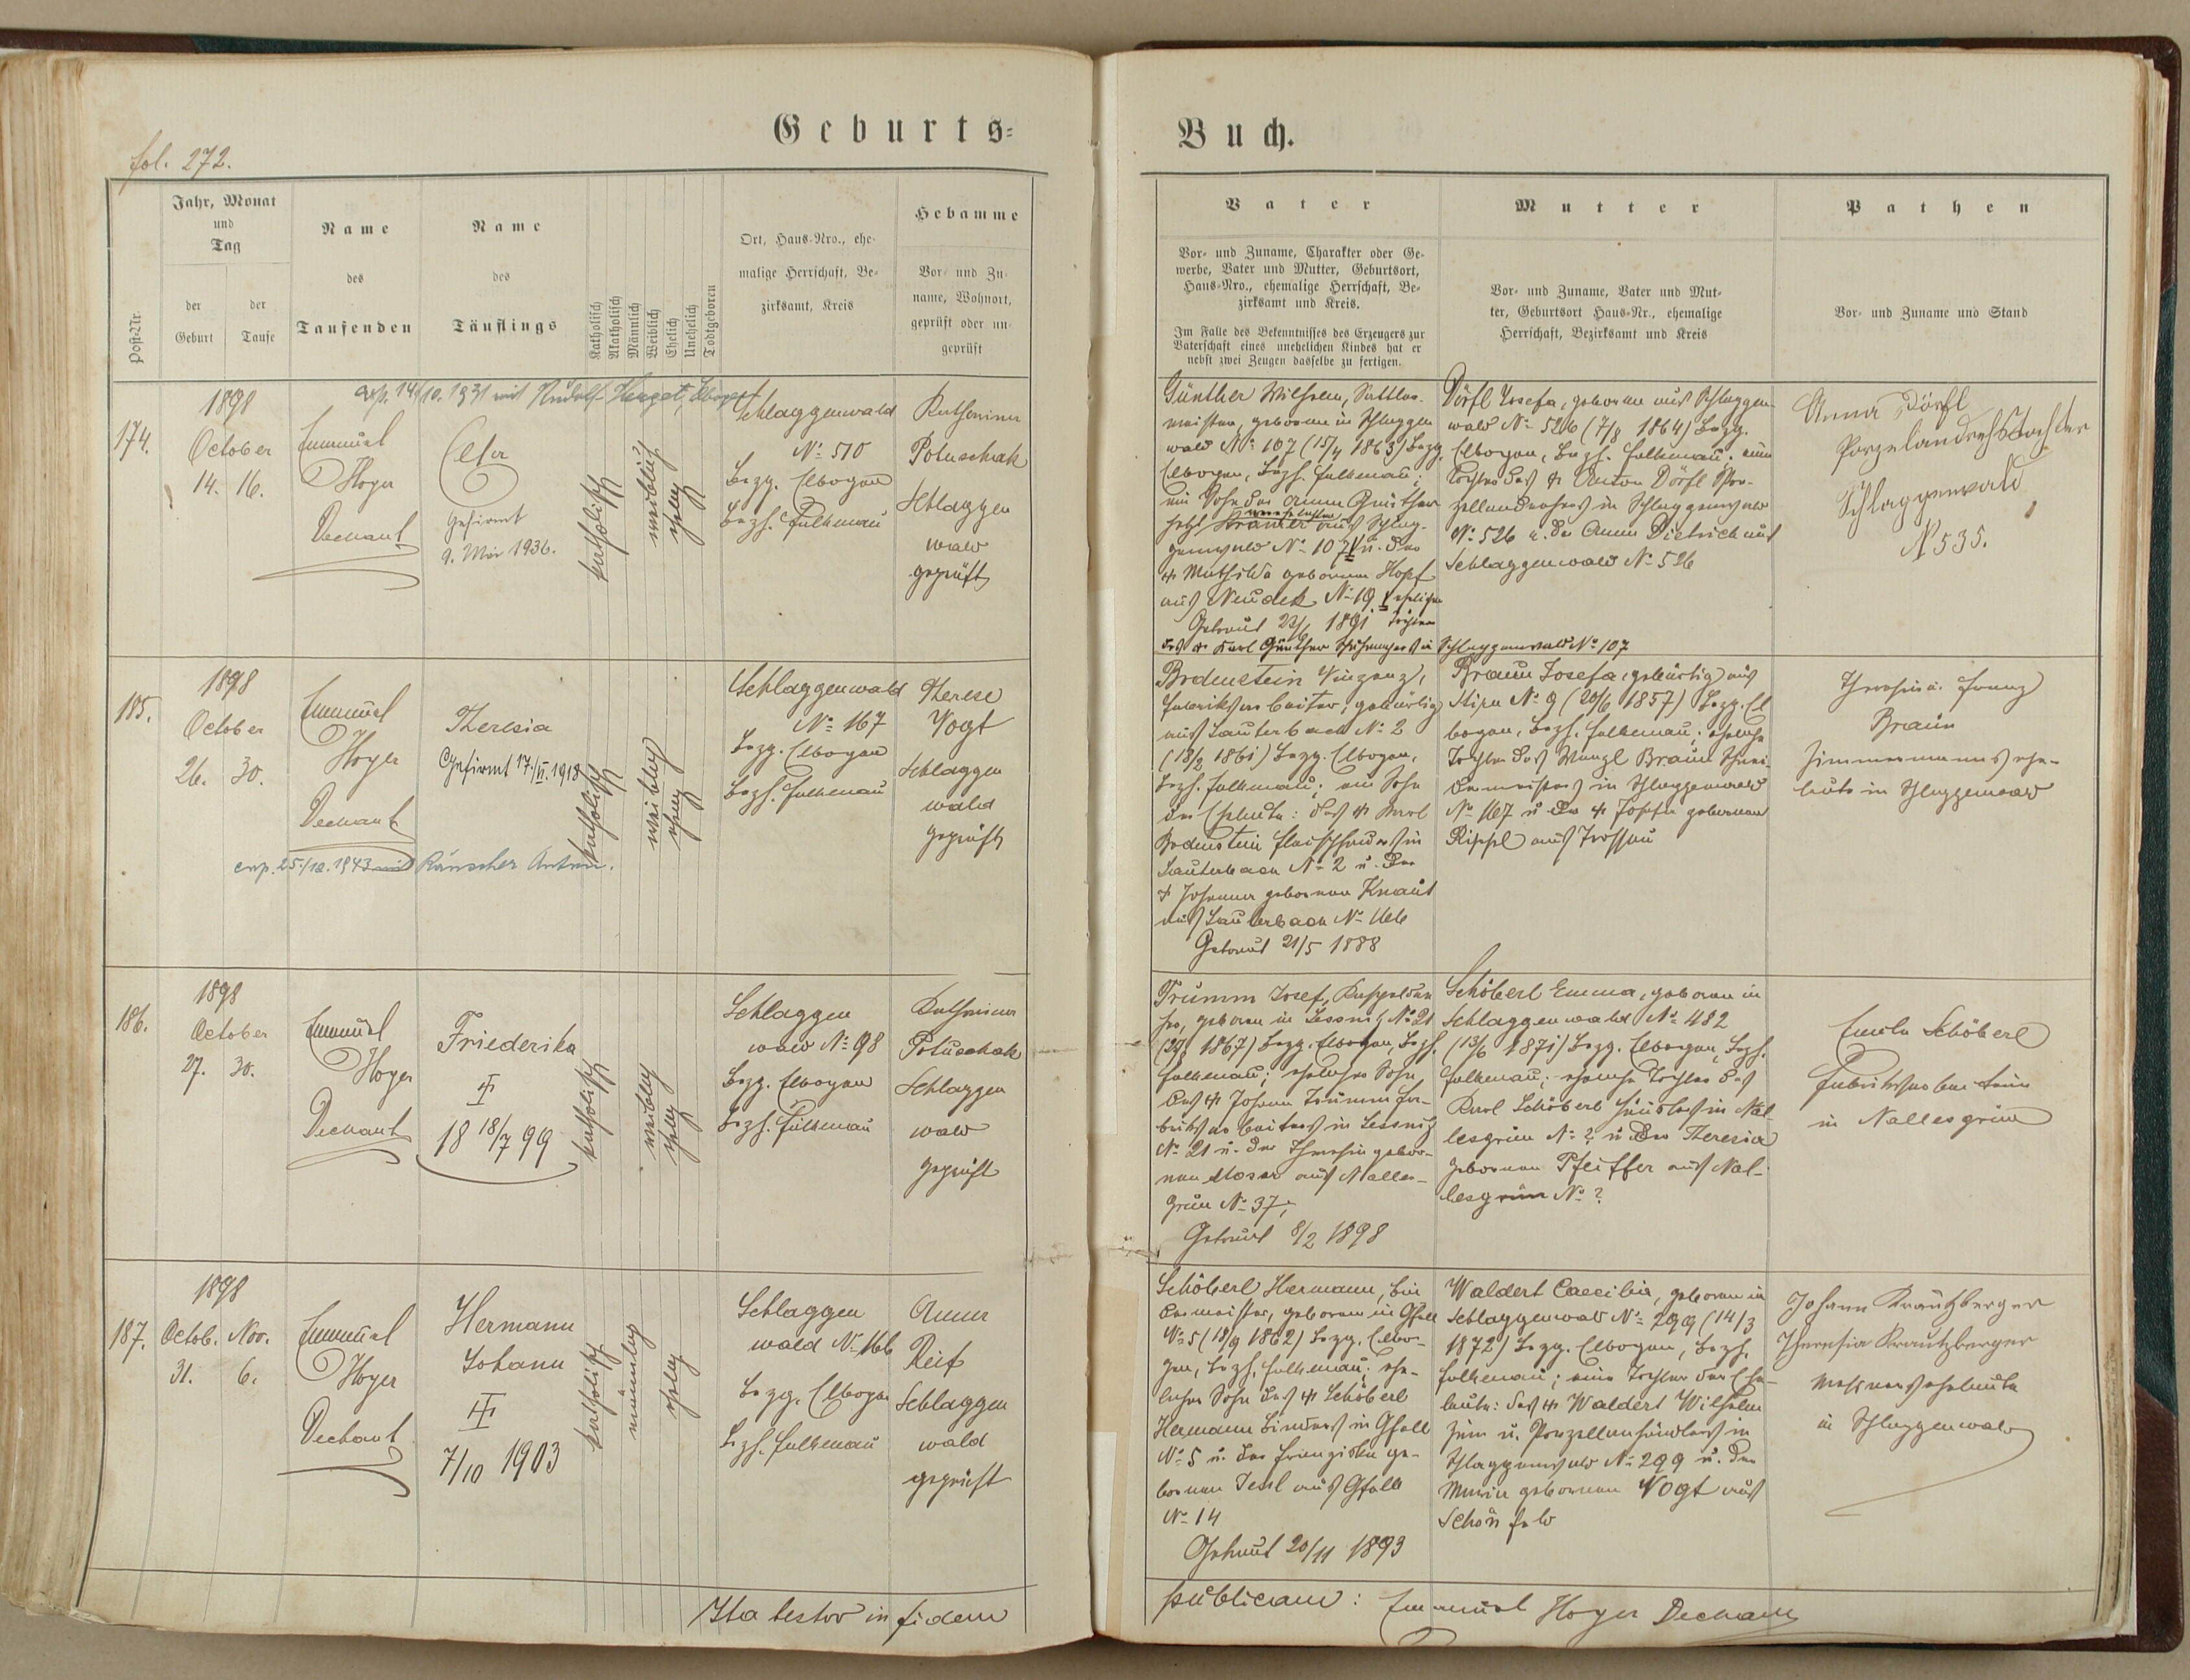 Geburts=
Buch.
fol. 272.
Post-Nr.
Jahr, Monat
und
Tag
der
Geburt
der
Taufe
Name
des
Taufenden
Name
des
Täuflings
Katholisch
Akatholisch
Männlich
Weiblich
Ehelich
Unehelich
Todtgeboren
Ort, Haus-Nro., ehe-
malige Herrschaft, Be-
zirksamt, Kreis
Hebamme
Vor- und Zu-
name, Wohnort,
geprüft oder un-
geprüft
Vater
Vor- und Zuname, Charakter oder Ge-
werbe, Vater und Mutter, Geburtsort,
Haus-Nro., ehemalige Herrschaft, Be-
zirksamt und Kreis.
Im Falle des Bekenntnisses des Erzeugers zur
Vaterschaft eines unehelichen Kindes hat er
nebst zwei Zeugen dasselbe zu fertigen.
Mutter
Vor- und Zuname, Vater und Mut-
ter, Geburtsort Haus-Nr., ehemalige
Herrschaft, Bezirksamt und Kreis
Pathen
Vor- und Zuname und Stand
174.
1898
October
14. 16.
Emanuel
Hoyer
Dechant
cop. 14/10. 1931 mit Rudolf
Gefirmt
9. Mai 1936.
katholisch
weiblich
ehelich
Schlaggenwald
No 510
Bezg. Elbogen
Bezh. Falkenau
Katharina
Potuschak
Schlaggen
wald
geprüft
Günther Wilhelm, Sattler-
meister, geboren in Schlaggen
wald No 107 (15/4 1863) Bezg.
Elbogen, Bezh. Falkenau;
ein Sohn der Anna Günther
aus Neudek No 19 ehelichen
Getraut 23/6 1891 Tochter
des + Karl Günther in Schlaggenwald No 107
Dörfl Josefa, geboren aus Schlaggen
wald No 526 (7/8 1864) Bezg.
Elbogen, Bezh. Falkenau; eine
Tochter des + Anton Dörfl Por-
zellandrehers in Schlaggenwald
No 526 u. der Anna Dietrich aus
Schlaggenwald No 526
Anna Dörfl
Porzelandrehstochter
Schlaggenwald
No 535.
185.
1898
October
26. 30.
Emanuel
Hoyer
Dechant
Theresia
Gefirmt 17./VI. 1918
cop. 25./12. 1943 mit Räuscher Anton.
katholisch
weiblich
ehelich
Schlaggenwald
No 167
Bezg. Elbogen
Bezh. Falkenau
Therese
Vogt
Schlaggen
wald
geprüft
Bodenstein Vinzenz,
Fabriksarbeiter, gebürtig
aus Lauterbach No 2
Bezg. Elbogen,
Bezh. Falkenau; ein Sohn
der Eheleute: des + Karl
Bodenstein Fleischhauers in
Lauterbach No 2 u. der
+ Johanna geborenen Knaut
aus Lauterbach No
Getraut 21/5 1888
Braun Josefa, gebürtig aus
No 9 (20/6 1857) Bezg. El
bogen, Bezh. Falkenau; eheliche
Tochter des Wenzl Braun Schnei-
dermeisters in Schlaggenwald
No 167 u. der + Josefa geborenen
Rippl aus
Theresia u. Franz
Braun
Zimmermannsehe-
leute in Schlaggenwald
186.
1898
October
27. 30.
Emanuel
Hoyer
Dechant
Friederika
18 18/7 99
katholisch
weiblich
ehelich
Schlaggen
wald No 98
Bezg. Elbogen
Bezh. Falkenau
Katharina
Potuschak
Schlaggen
wald
geprüft
Trumm Josef,
geboren in Lessnitz No 21
1867) Bezg. Elbogen, Bezh.
Falkenau; ehelicher Sohn
des + Johann Trumm Fa-
briksarbeiters in Lessnitz
No 21 u. der Theresia gebor-
nen Moser aus Nalles-
grün No 37;
Getraut 8/2 1898
Schöberl Emma, geboren in
Schlaggenwald No 482
(13/6 1871) Bezg. Elbogen, Bezh.
Falkenau; eheliche Tochter des
Karl Schöberl Häuslers in Nal
lesgrün No ? u. der Theresia
geborenen Pfeiffer aus Nal-
lesgrün No ?
Emila Schöberl
Fabriksarbeiterin
in Nallesgrün
187.
1898
Octob. Nov.
31. 6.
Emanuel
Hoyer
Dechant
Hermann
Johann
7/10 1903
katholisch
männlich
ehelich
Schlaggen
wald No 166
Bezg. Elbogen
Bezh. Falkenau
Anna
Reif
Schlaggen
wald
geprüft
Schöberl Hermann, Bin
dermeister, geboren in Gfell
No 5 (18/9 1862) Bezg. Elbo-
gen, Bezh. Falkenau; ehe-
licher Sohn des + Schöberl
Hermann Binders in Gfell
No 5 u. der Franziska ge-
bornen aus Gfell
No 14
Getraut 20/11 1893
Waldert Caecilia, geboren in
Schlaggenwald No 299 (14/3
1872) Bezg. Elbogen, Bezh.
Falkenau; eine Tochter der Ehe-
leute: des + Waldert Wilhelm
Zinn u. Porzellanhändlers in
Schlaggenwald No 299 u. der
Maria geborenen Vogt aus
Schönfeld
Johann Krautzberger
Theresia Krautzberger
Messnerseheleute
in Schlaggenwald
Ita testor in fidem
publicam: Emanuel Hoyer Dechant